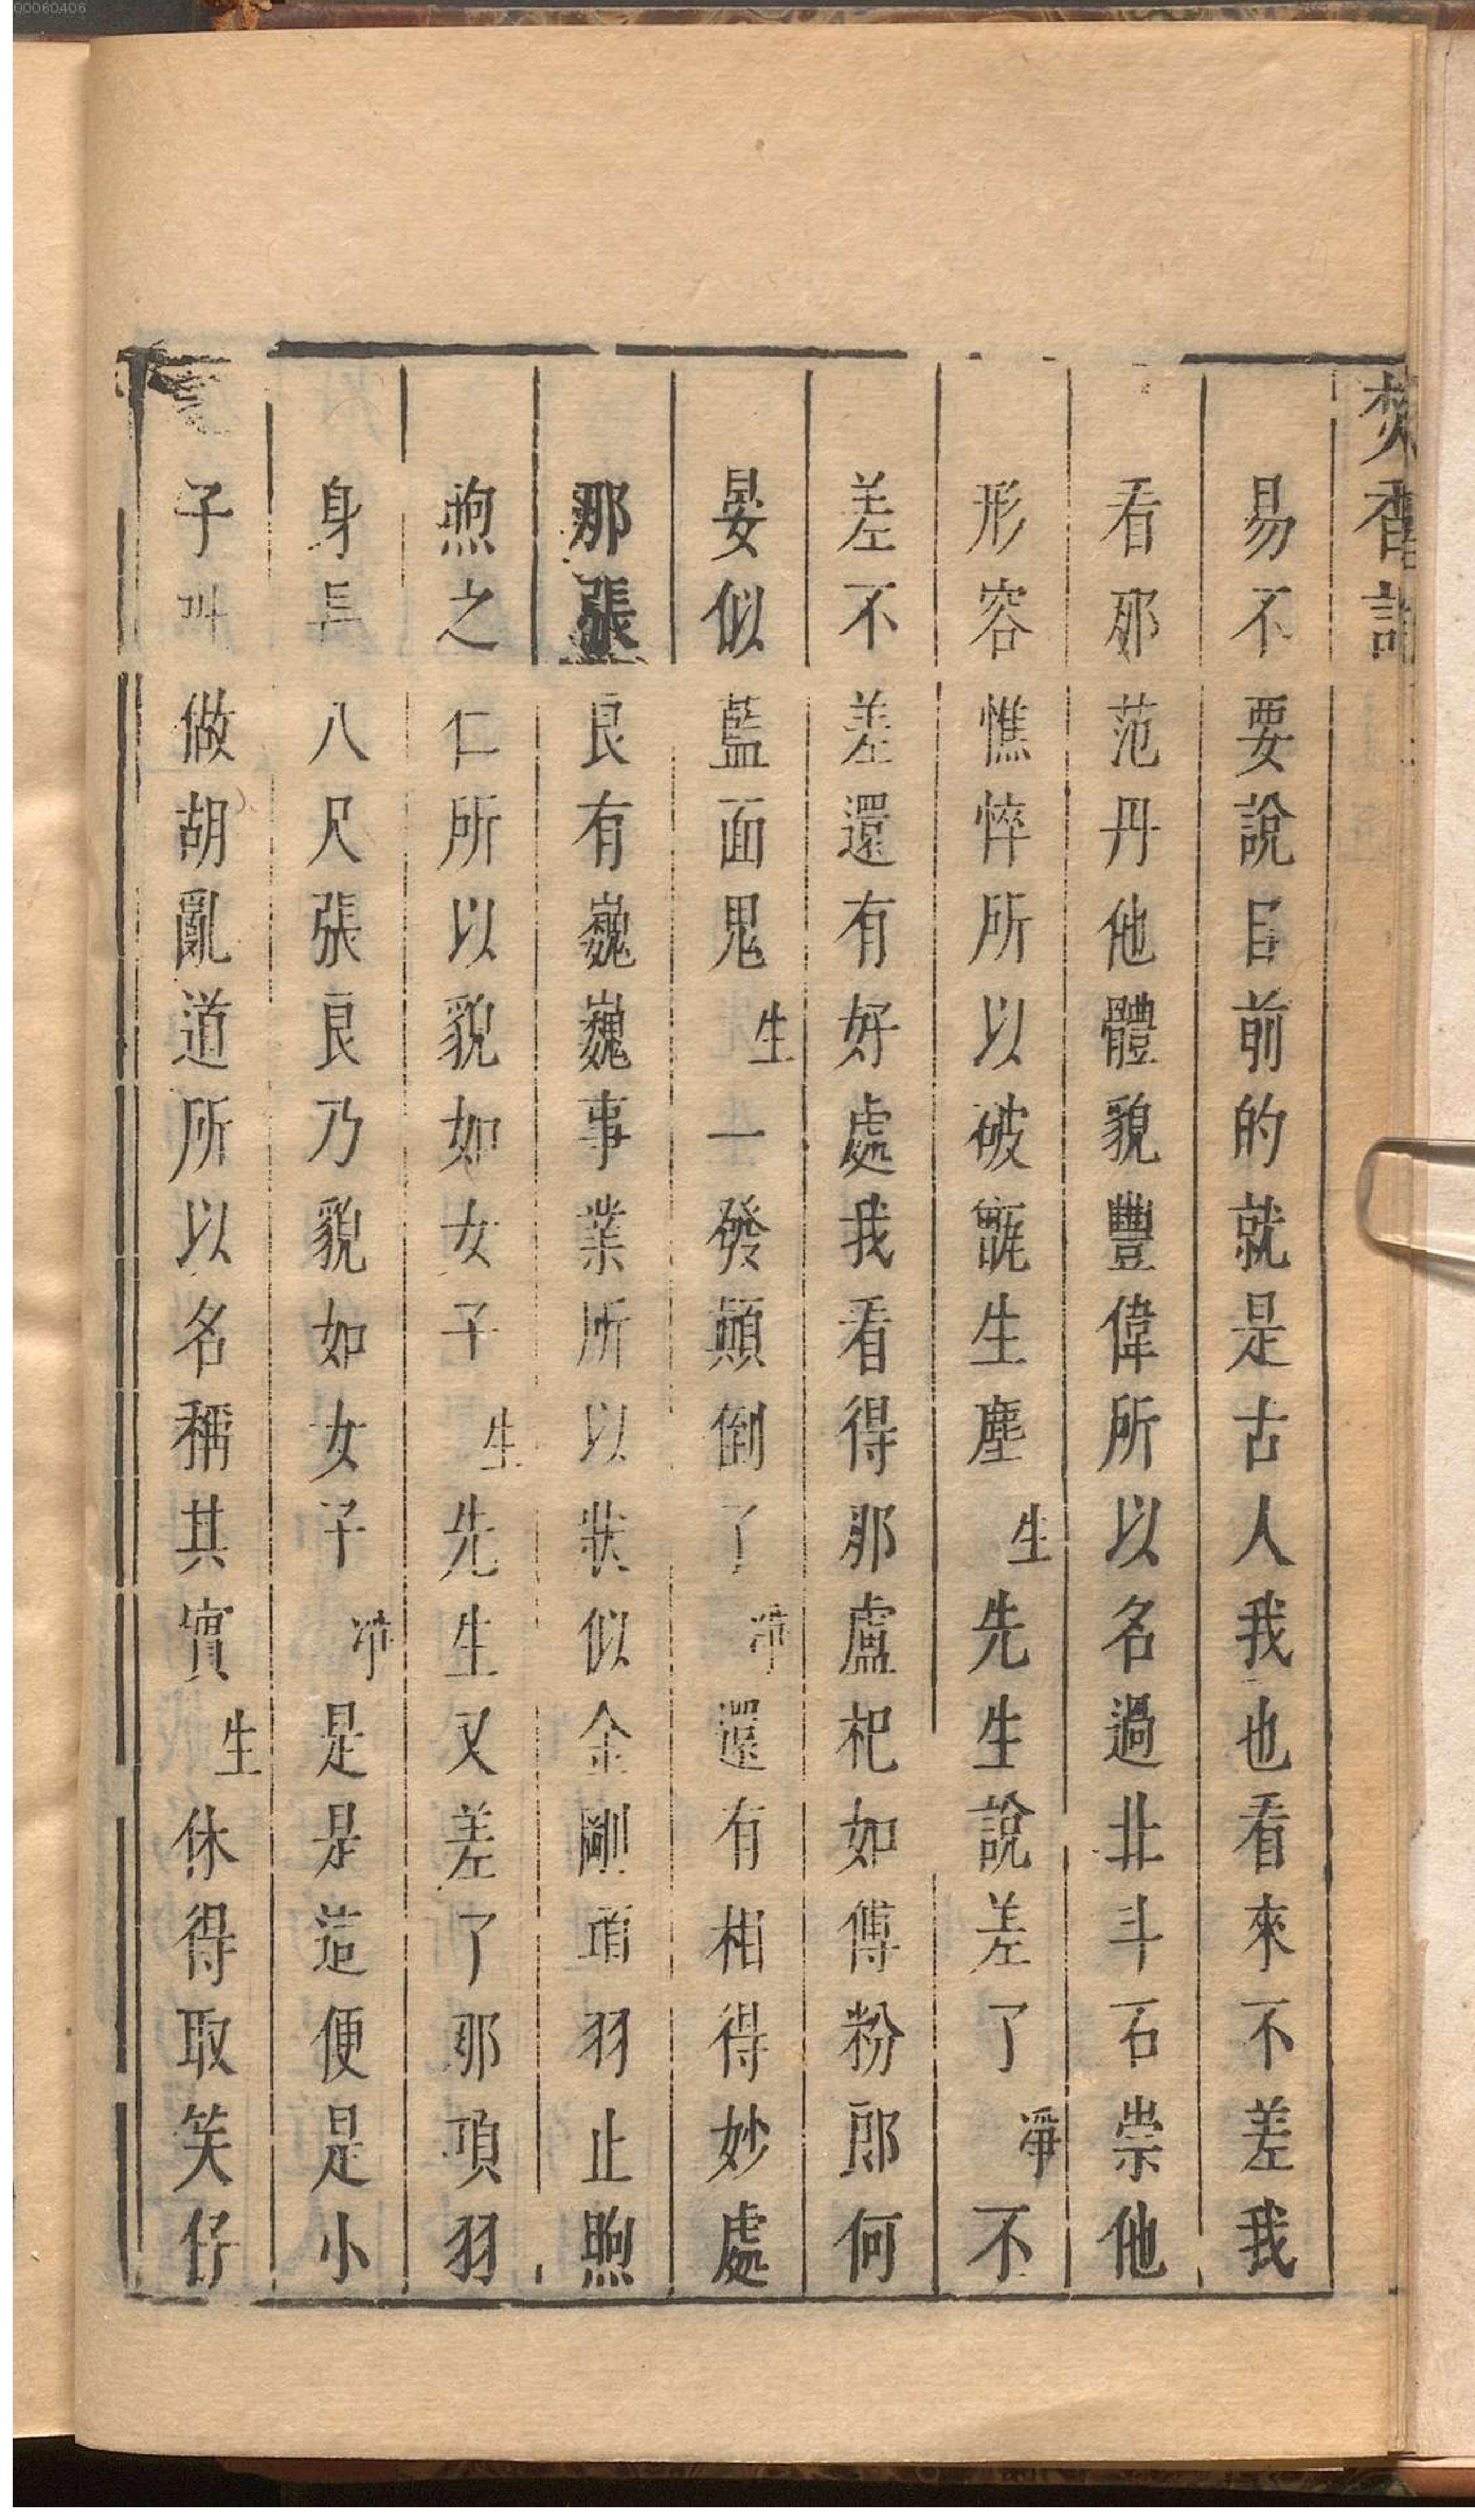 00060406
焚香記
易不要說目前的就是古人我也看來不差我
看那范丹他體貌豐偉所以名過北斗石崇他
形容憔悴所以破甑生塵生先生說差了淨不
差不差還有好處我看得那盧杞如傅粉郎何
晏似藍面鬼生一發顛倒了淨還有相得妙處
那張良有巍巍事業所以狀似金剛項羽止煦
煦之仁所以貌如女子生先生又差了那項羽
身長八尺張良乃貌如女子淨是是這便是小
子叫做胡亂道所以名稱其實生休得取笑仔